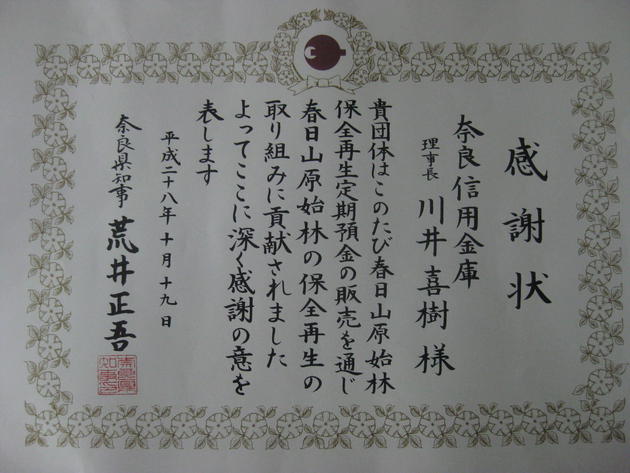 感謝状
奈良信用金庫
理事長 川井喜樹様
貴団体はこのたび春日山原始林
保全再生定期預金の販売を通じ
春日山原始林の保全再生の
取り組みに貢献されました
よってここに深く感謝の意を
表します
平成二十八年十月十九日
奈良県知事 荒井正吾